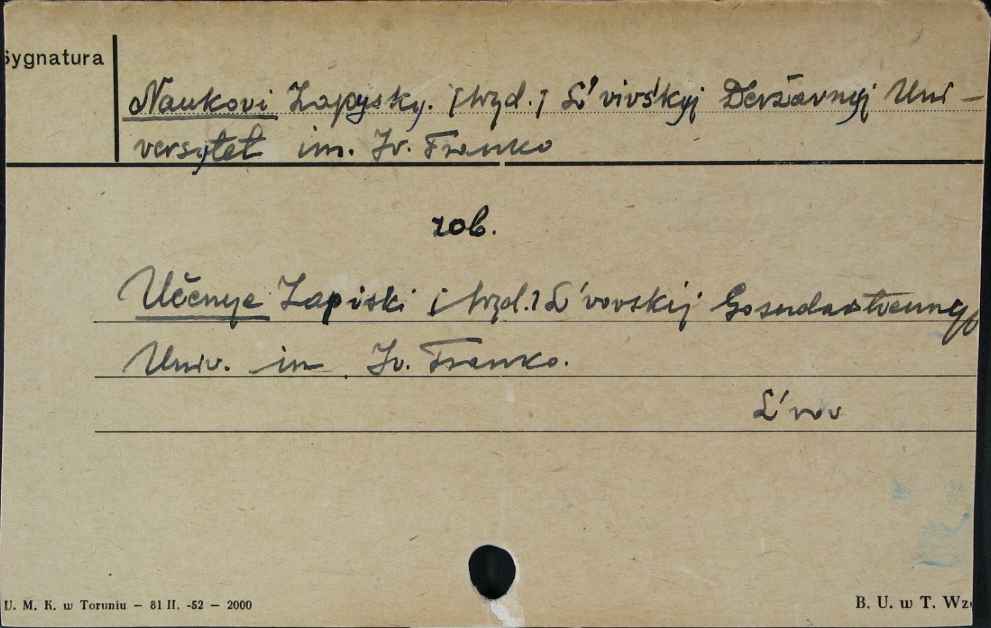 Sygnatura
Naukovi Zapysky. [Wyd.] L'vivs'kyj Deržavnyj Uni-
versytet im. Iv. Franko
zob.
Učenye Zapiski [Wyd.] L'vovskij Gosudarstvennyj
Univ. im. Iv. Franko.
L'vov
U. M. K. w Toruniu – 81 II. -52 – 2000
B. U. w T. Wzó